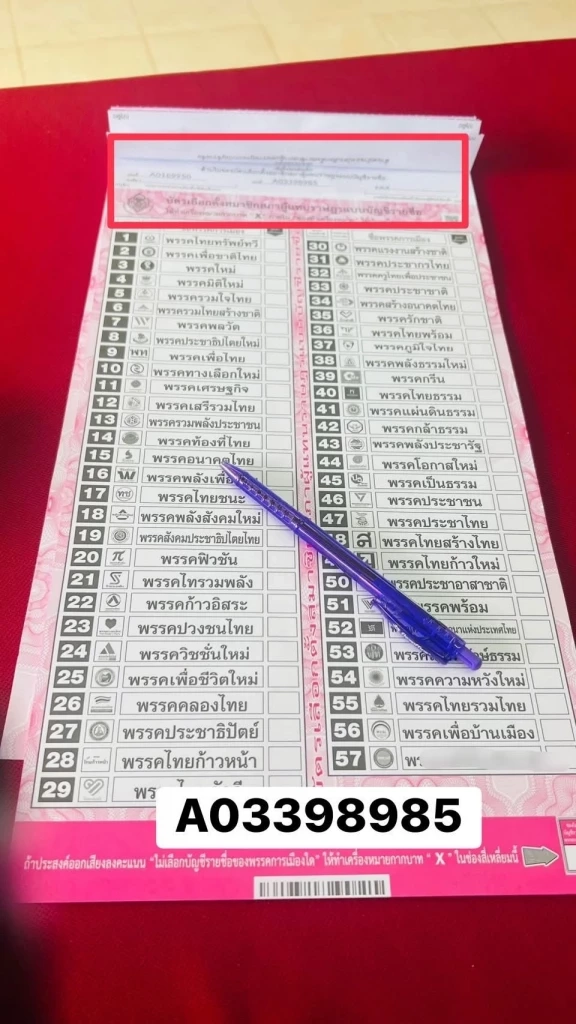 A0168956
A03398985
บัตรเลือกตั้งสมาชิกสภาผู้แทนราษฎรแบบบัญชีรายชื่อ
ชื่อพรรคการเมือง
1 พรรคไทยทรัพย์ทวี
2 พรรคเพื่อชาติไทย
3 พรรคใหม่
4 พรรคมิติใหม่
5 พรรครวมใจไทย
6 พรรครวมไทยสร้างชาติ
7 พรรคพลวัต
8 พรรคประชาธิปไตยใหม่
9 พท พรรคเพื่อไทย
10 พรรคทางเลือกใหม่
11 พรรคเศรษฐกิจ
12 พรรคเสรีรวมไทย
13 พรรครวมพลังประชาชน
14 พรรคท้องที่ไทย
15 พรรคอนาคตไทย
16 พรรคพลังเพื่อ
17 ทช พรรคไทยชนะ
18 พรรคพลังสังคมใหม่
19 พรรคสังคมประชาธิปไตยไทย
20 พรรคฟิวชัน
21 พรรคไทรวมพลัง
22 พรรคก้าวอิสระ
23 พรรคปวงชนไทย
24 พรรควิชชั่นใหม่
25 พรรคเพื่อชีวิตใหม่
26 พรรคคลองไทย
27 พรรคประชาธิปัตย์
28 พรรคไทยก้าวหน้า
29
30 พรรคแรงงานสร้างชาติ
31 พรรคประชากรไทย
32 พรรคครูไทยเพื่อประชาชน
33 พรรคประชาชาติ
34 พรรคสร้างอนาคตไทย
35 พรรครักชาติ
36 พรรคไทยพร้อม
37 พรรคภูมิใจไทย
38 พรรคพลังธรรมใหม่
39 พรรคกรีน
40 พรรคไทยธรรม
41 พรรคแผ่นดินธรรม
42 พรรคกล้าธรรม
43 พรรคพลังประชารัฐ
44 พรรคโอกาสใหม่
45 พรรคเป็นธรรม
46 พรรคประชาชน
47 พรรคประชาไทย
8 ส พรรคไทยสร้างไทย
พรรคไทยก้าวใหม่
50 พรรคประชาอาสาชาติ
51 พรรคพร้อม
52
53
54 พรรคความหวังใหม่
55 พรรคไทยรวมไทย
56 พรรคเพื่อบ้านเมือง
57
A03398985
ถ้าประสงค์ออกเสียงลงคะแนน "ไม่เลือกบัญชีรายชื่อของพรรคการเมืองใด" ให้ทำเครื่องหมายกากบาท "X" ในช่องสี่เหลี่ยมนี้